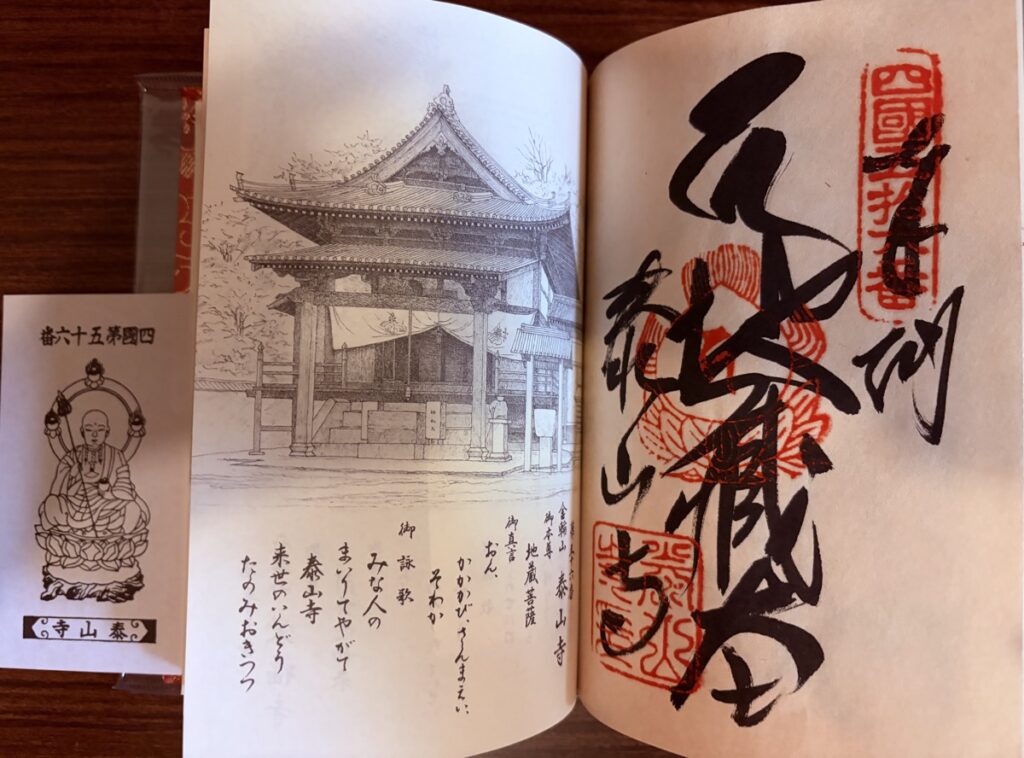 四國五拾六番
奉納
地蔵大士
泰山寺
金輪山 泰山寺
御本尊
地蔵菩薩
御真言
おん、
かかかび、さんまえい、
そわか
御詠歌
みな人の
まいりてやがて
泰山寺
来世のいんどう
たのみおきつつ
四國第五十六番
泰山寺